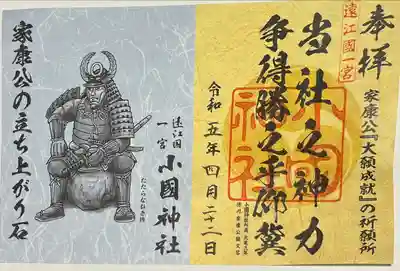 奉拝
遠江國一宮
家康公『大願成就』の祈願所
当社之神力
争得勝之手廊冀
令和五年四月二十二日
遠江国
一宮
小國神社
家康公の立ち上がり石